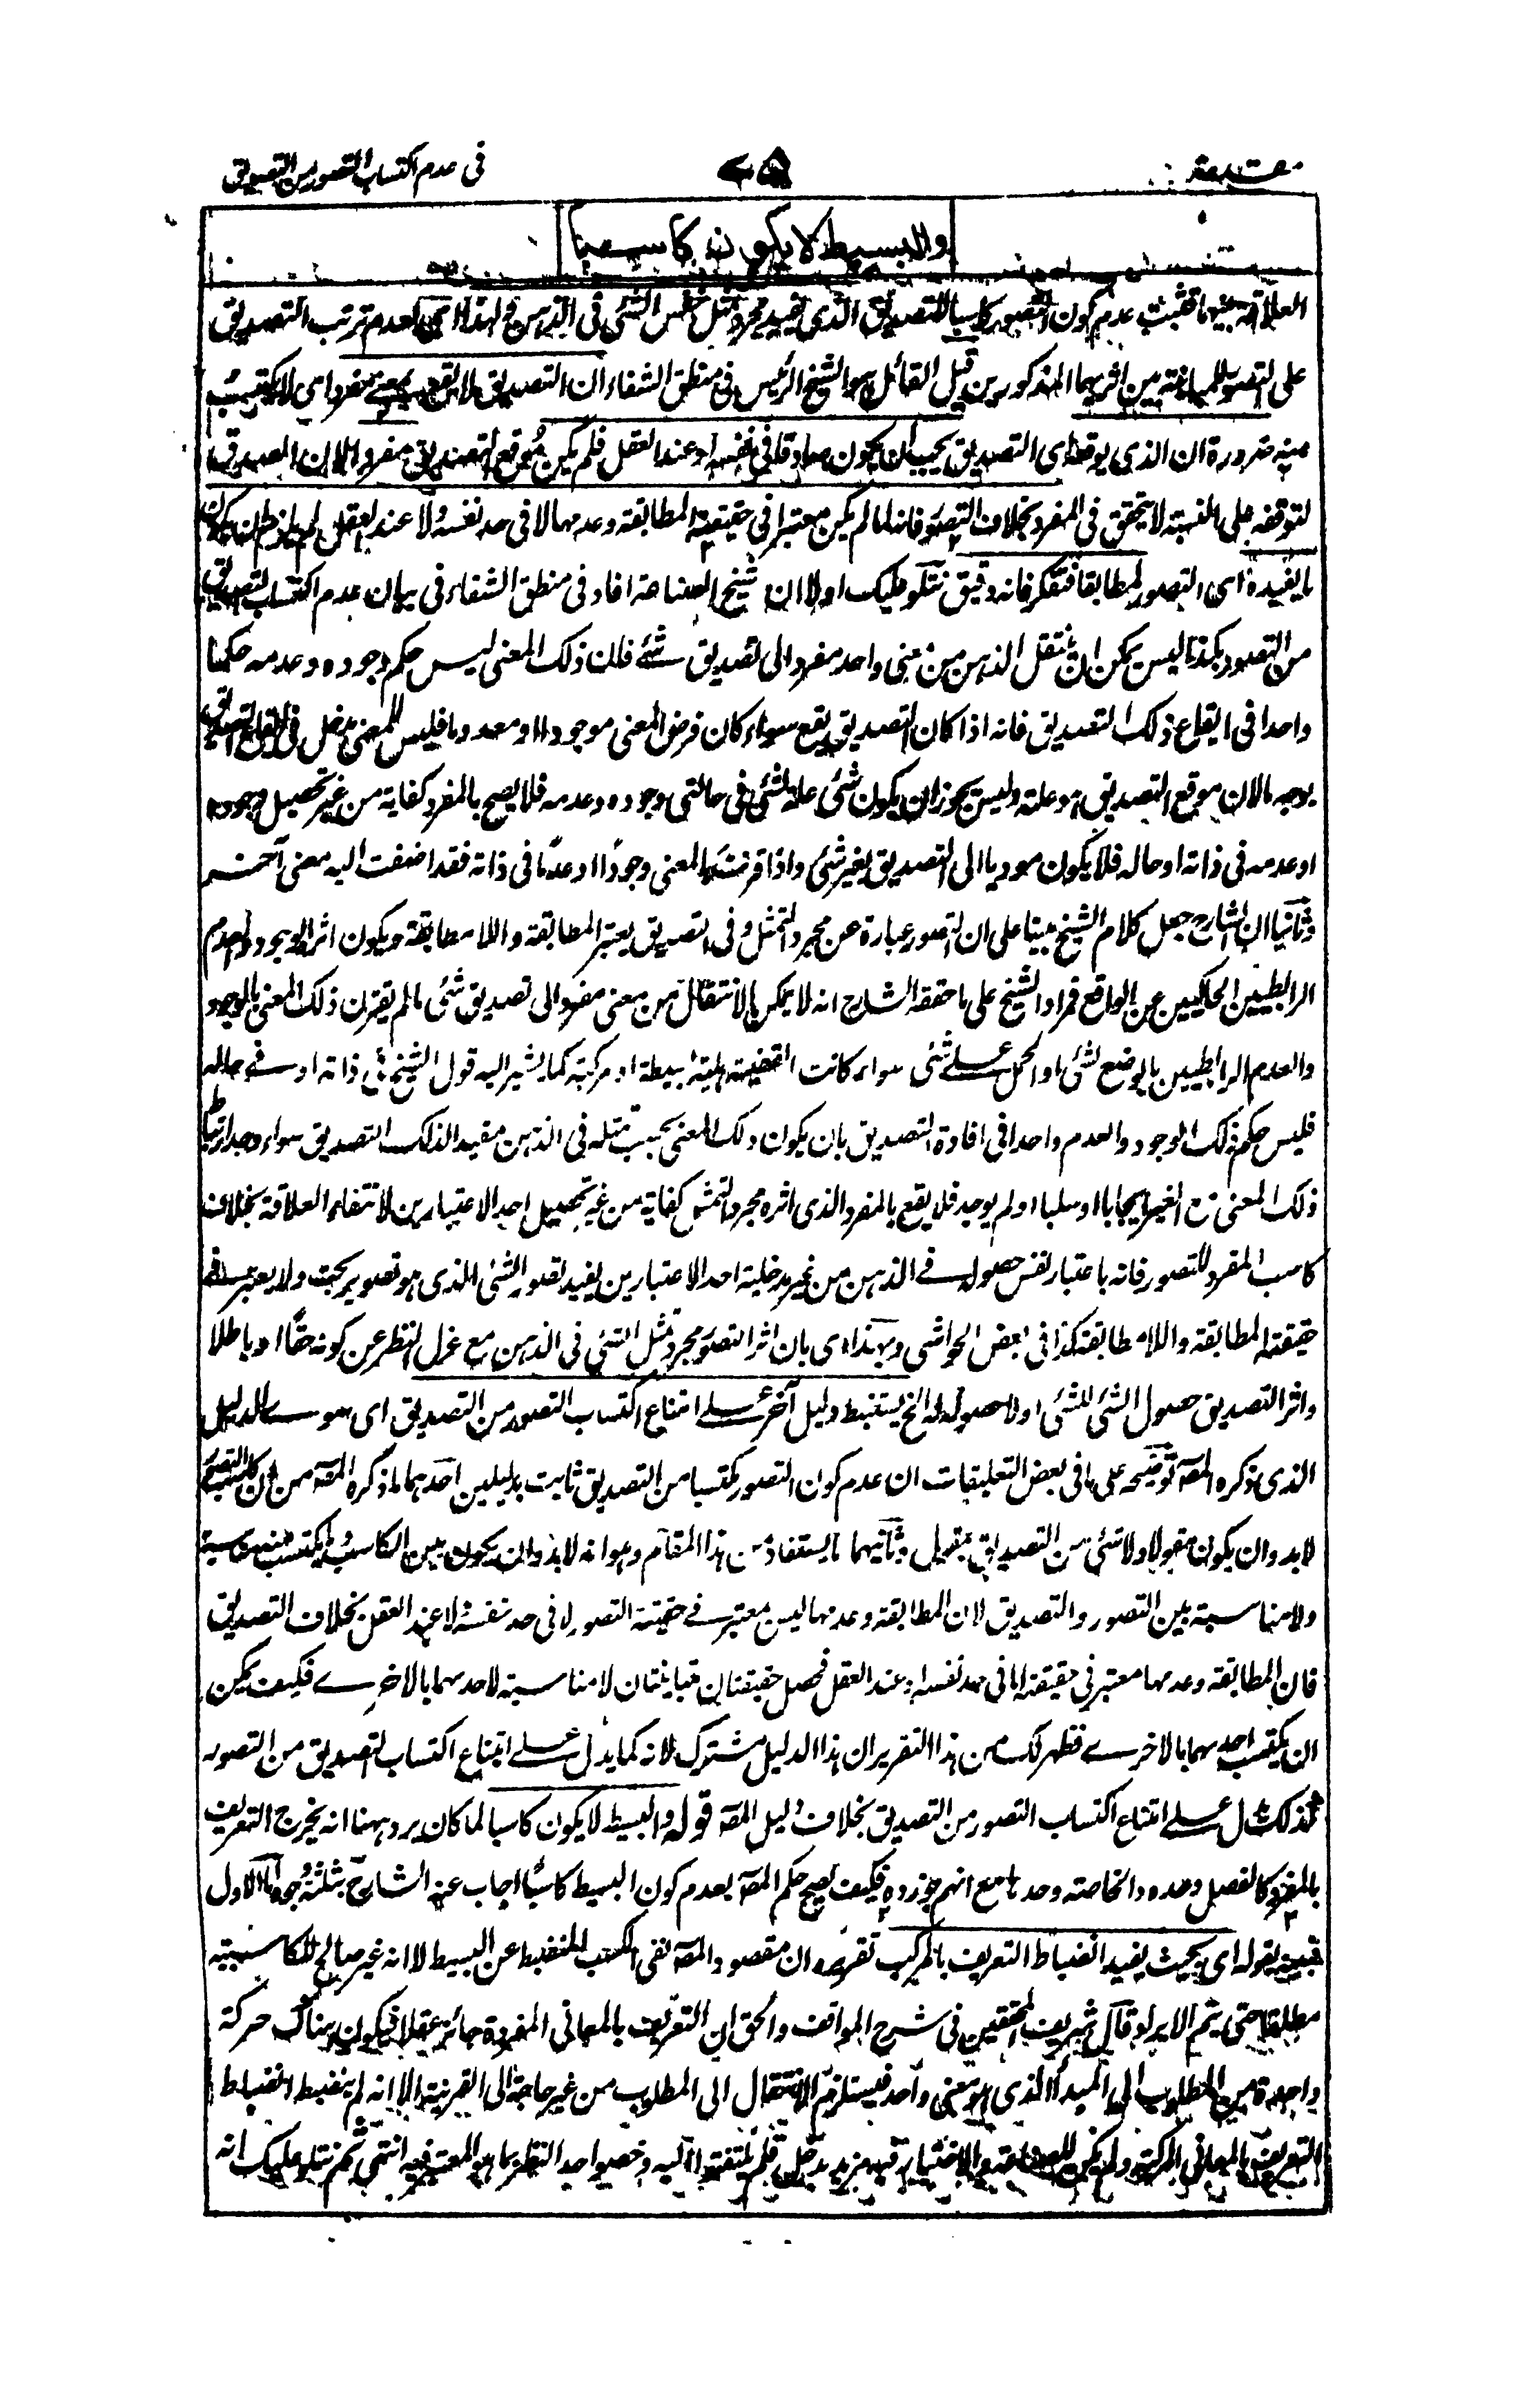 مقدمة
٧٥
في عدم اكتساب التصور من التصديق
والبسيط لا يكون كاسبا
العلاقة بينهما فثبت عدم كون التصور كاسبا للتصديق الذي يفيد مجرد تمثل نفس الشئ في الذهن لعدم ترتب التصديق
على التصور للمباينة بين اثريهما المذكورين قيل القائل هو الشيخ الرئيس في منطق الشفاء ان التصديق لا يقع بمعنى مفرد اى لا يكتسب
منه ضرورة ان الذي يوقعه اى التصديق يجب ان يكون صادقا في نفسه او عند العقل فلم يكن موقع التصديق مفردا لان الصدق
لتوقفه على النسبة لا يتحقق في المفرد بخلاف التصور فانه لما لم يكن معتبرا في حقيقته المطابقة وعدمها لا في حد نفسه ولا عند العقل
ما يفيده اى التصور مطابقا فتفكر فانه دقيق نتلو عليك اولا ان شيخ الصناعة افاد في منطق الشفاء في بيان عدم اكتساب التصديق
من التصور هكذا ليس يمكن ان ينتقل الذهن من معنى واحد مفرد الى تصديق شئ فان ذلك المعنى ليس حكم وجوده وعدمه حكما
واحدا في ايقاع ذلك التصديق فانه اذا كان التصديق يقع سواء كان فرض المعنى موجودا او معدوما فليس للمعنى مدخل في ايقاع التصديق
بوجه ما لان موقع التصديق هو علته وليس يجوز ان يكون شئ علة لشئ في حالتى وجوده وعدمه فلا يصح بالمفرد كفاية من غير تحصيل وجوده
او عدمه في ذاته او حاله فلا يكون موديا الى التصديق بغير شئ واذا قرنت بالمعنى وجودًا او عدمًا في ذاته فقد اضفت اليه معنى آخر
وثانيا ان الشارح جعل كلام الشيخ مبنيا على ان التصور عبارة عن مجرد التمثل وفي التصديق يعتبر المطابقة واللا مطابقة ويكون اثره الوجود والعدم
الرابطيين الحاكيين عن الواقع فمراد الشيخ على ما حققه الشارح انه لا يمكن الانتقال من معنى مفرد الى تصديق شئ ما لم يقترن ذلك المعنى بالوجود
والعدم الرابطيين بالوضع لشئ او الحمل على شئ سواء كانت القضية هلية بسيطة او مركبة كما يشير اليه قول الشيخ في ذاته او في حاله
فليس حكم ذلك الوجود والعدم واحدا في افادة التصديق بان يكون ذلك المعنى بحسب تمثله في الذهن مفيدا لذلك التصديق سواء وجد ارتباط
ذلك المعنى مع الغير ايجابا او سلبا او لم يوجد فلا يقع بالمفرد الذي اثره مجرد التمثل كفاية من غير تحصيل احد الاعتبارين لانتفاء العلاقة بخلاف
كاسب المفرد للتصور فانه باعتبار نفس حصوله في الذهن من غير مدخلية احد الاعتبارين يفيد تصور الشئ الذي هو تصوير بحت ولا يعتبر في
حقيقته المطابقة واللا مطابقة كذا في بعض الحواشي وبهذا اى بان اثر التصور مجرد تمثل الشئ في الذهن مع عزل النظر عن كونه حقًا او باطلا
واثر التصديق حصول الشئ للشئ او لا حصوله له الخ يستنبط دليل آخر على امتناع اكتساب التصور من التصديق اى سوى الدليل
الذي ذكره المصـ توضيحه على ما في بعض التعليقات ان عدم كون التصور مكتسبا من التصديق ثابت بدليلين احدهما ما ذكره المصـ من ان كاسب التصور
لا بد وان يكون مقولا ولا شئ من التصديق بمقول وثانيهما ما يستفاد من هذا المقام وهو انه لا بد وان يكون بين الكاسب والمكتسب منه مناسبة
ولا مناسبة بين التصور والتصديق لان المطابقة وعدمها ليس معتبر في حقيقة التصور لا في حد نفسه ولا عند العقل بخلاف التصديق
فان المطابقة وعدمها معتبر في حقيقته اما في حد نفسه او عند العقل فحصل حقيقتان متباينتان لا مناسبة لاحدهما بالاخرى فكيف يمكن
ان يكتسب احدهما بالاخرى فظهر لك من هذا التقرير ان هذا الدليل مشترك لانه كما يدل على امتناع اكتساب التصديق من التصور
كذلك يدل على امتناع اكتساب التصور من التصديق بخلاف دليل المصـ قوله والبسيط لا يكون كاسبا لما كان يرد ههنا انه يخرج التعريف
بالمفرد كالفصل وحده والخاصة وحدها مع انهم جوزوه فكيف يصح حكم المصـ بعدم كون البسيط كاسبًا اجاب عنه الشارح بثلثة وجوه اما الاول
فبينه بقوله اى بحيث يفيد انضباط التعريف بالمركب تقريره ان مقصود المصـ نفى الكسب المنضبط عن البسيط لا انه غير صالح للكاسبية
مطلقا حتى يتم الايراد قال شريف المحققين في شرح المواقف والحق ان التعريف بالمعاني المفردة جائز عقلا فيكون هناك حركة
واحدة من المطلوب الى المبدأ الذي هو معنى واحد فيستلزم الانتقال الى المطلوب من غير حاجة الى القرينة الا انه لم ينضبط انضباط
التعريف بالمعاني المركبة ولم يكن للصناعة والاختيار فيه مزيد مدخل فلم يلتفتوا اليه وخصوا حد النظر بما هو المعتبر فيه انتهى ثم نتلو عليك انه